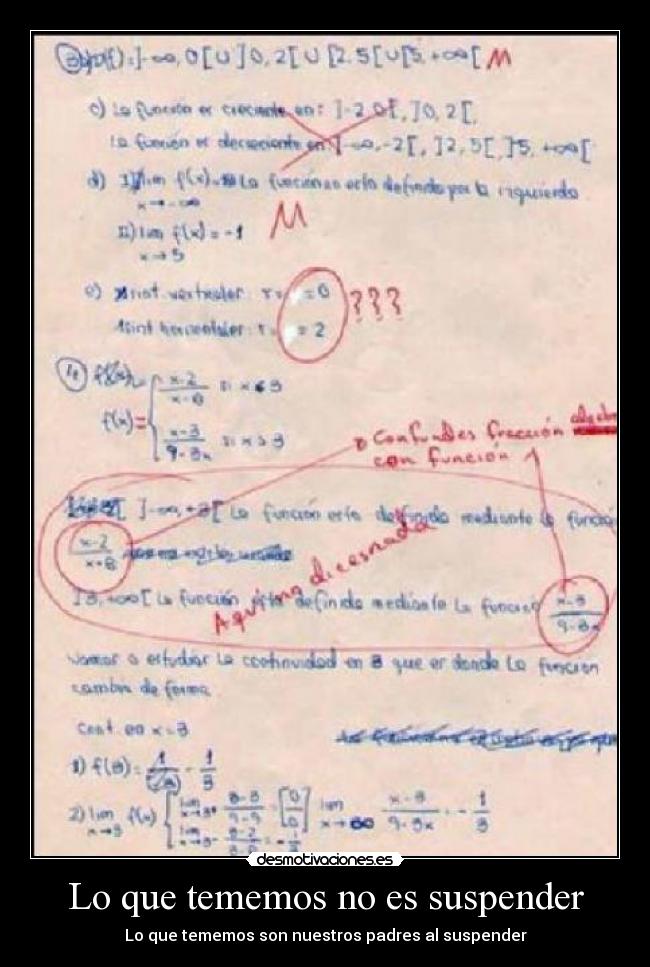 ③ b) D(f) = ]-∞, 0[ U ]0, 2[ U [2, 5[ U [5, +∞[ M
c) La función es creciente en: ]-2, 0[, ]0, 2[,
La función es decreciente en: ]-∞, -2[, ]2, 5[, ]5, +∞[
d) I) lim f(x) = La función no está definida por la izquierda.
x→-∞
II) lim f(x) = -1 M
x→5
e) Asint. verticales: = 0 ???
Asint horizontales: = 2
④ f(x)
f(x) = { x-2 / x-8 si x<3
x-3 / 9-3x si x>3
Confundes fracción
con función
]-∞, +3[ La función está definida mediante la
x-2 / x+8
Aquí no dices nada
]3, +∞[ La función está definida mediante la función x-3 / 9-3x
Vamos a estudiar la continuidad en 3 que es donde la función
cambia de forma
Cont. en x=3
1) f(3) = - 1/3
2) lim f(x) { lim x→3+ 3-3 / 9-9 = [0/0] lim x→∞ x-3 / 9-3x = - 1/3
x→3 lim x→3- 3-2
desmotivaciones.es
Lo que tememos no es suspender
Lo que tememos son nuestros padres al suspender